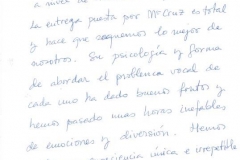 a nivel de
La entrega puesta por Mª Cruz es total
y hace que saquemos lo mejor de
nosotros. Su psicología y forma
de abordar el problema vocal de
cada uno ha dado buenos frutos y
hemos pasado unas horas inefables
de emociones y diversión. Hemos
única e irrepetible